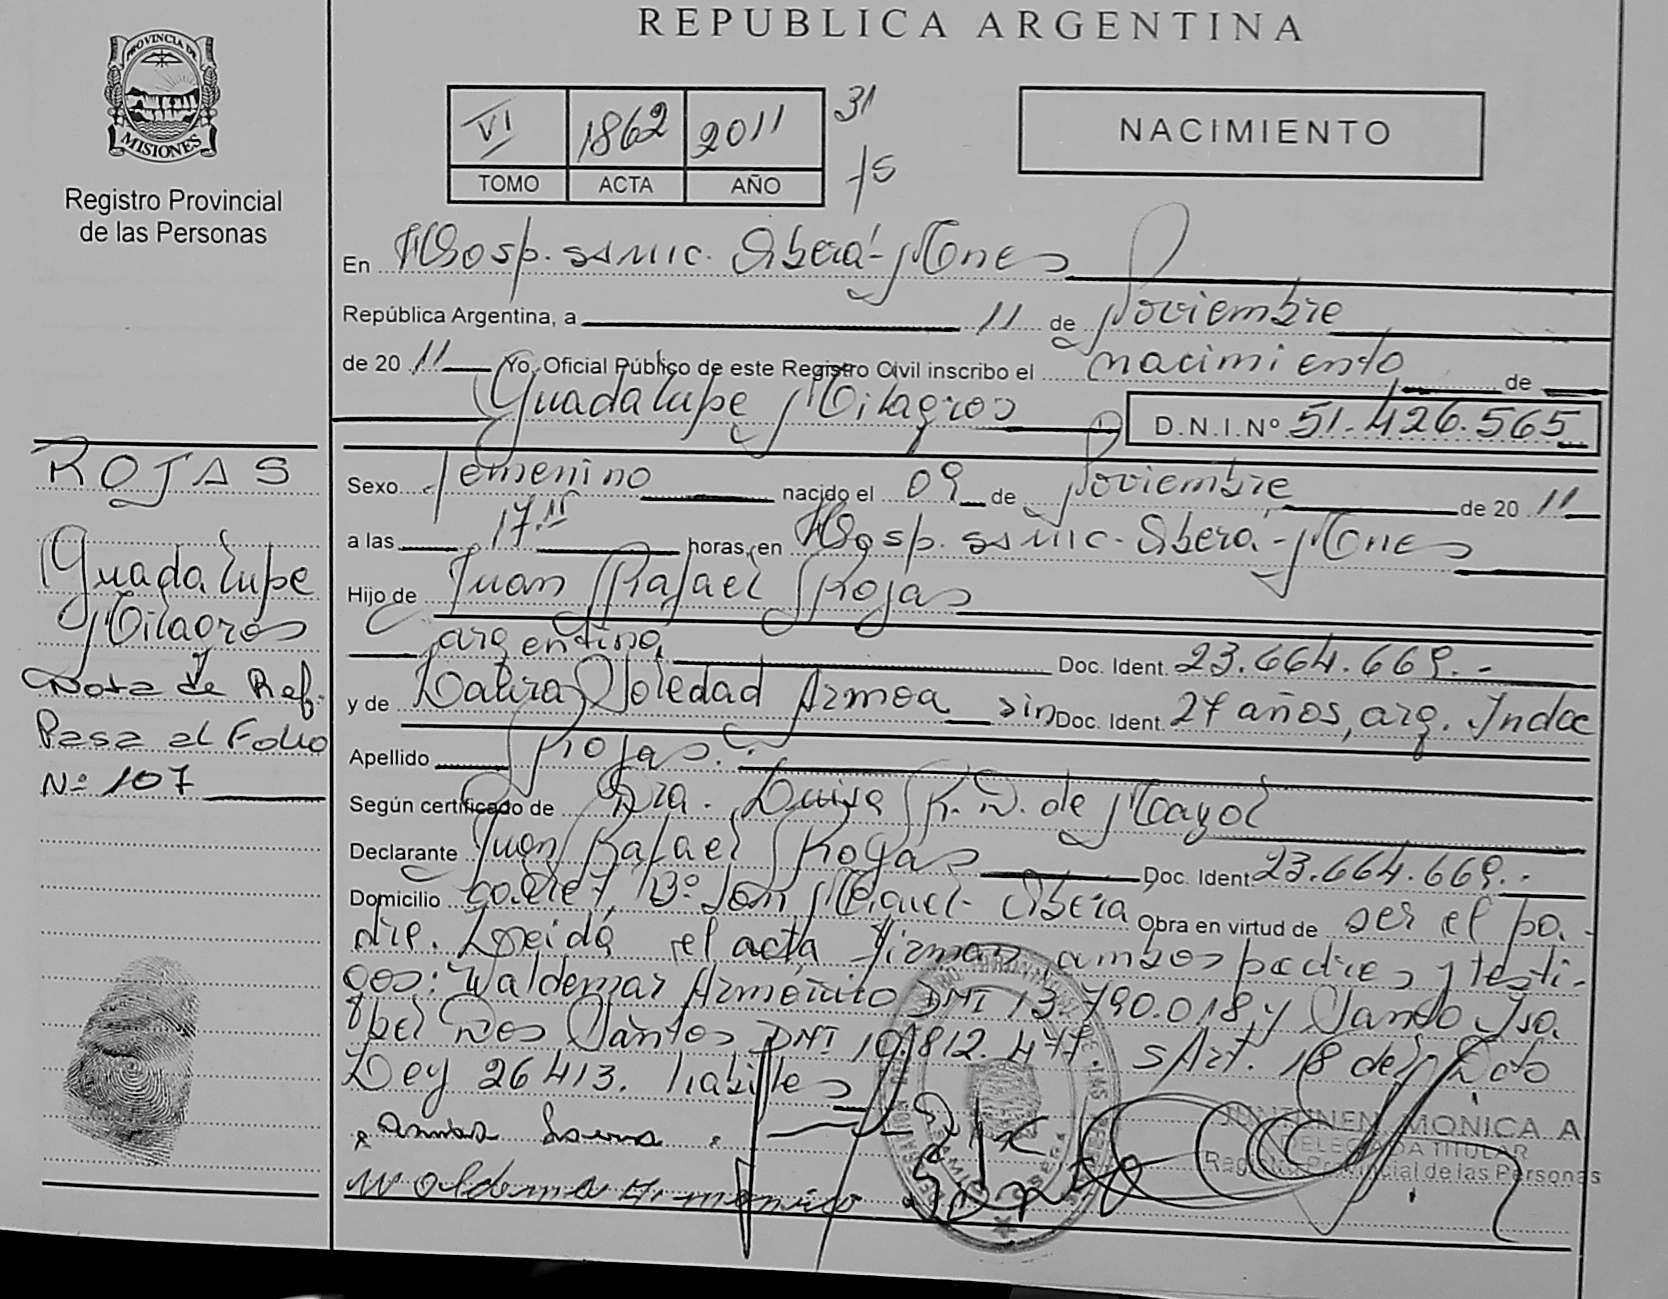 PROVINCIA DE
MISIONES
Registro Provincial
de las Personas
ROJAS
Guadalupe
Milagros
Nota de Ref.
Pasa al Folio
Nº 107
REPUBLICA ARGENTINA
VI 1862 2011 31
TOMO ACTA AÑO 15
NACIMIENTO
En Hosp. SAMIC. Oberá-Mones
República Argentina, a 11 de Noviembre
de 2011 Yo, Oficial Público de este Registro Civil inscribo el nacimiento de
Guadalupe Milagros D.N.I. Nº 51.426.565
Sexo femenino nacido el 09 de Noviembre de 2011
a las 17.11 horas, en Hosp. SAMIC. Oberá-Mones
Hijo de Juan Rafael Rojas
argentino, Doc. Ident. 23.664.669.-
y de Soledad Armoa sin Doc. Ident. 27 años, arg. Indoc
Apellido Rojas.
Según certificado de Dra. Luisa K. D. de Mayol
Declarante Juan Rafael Rojas Doc. Ident. 23.664.669.-
Domicilio Bº San Miguel- Oberá Obra en virtud de ser el pa-
dre. Leída el acta firman ambos padres y testi-
gos: Waldemar DNI 13.790.018, y Isa
bel Dos Santos DNI 19.812.477 s/Art. 18 de
Ley 26413. habiles
MONICA A
DELEGADA TITULAR
Registro Provincial de las Personas